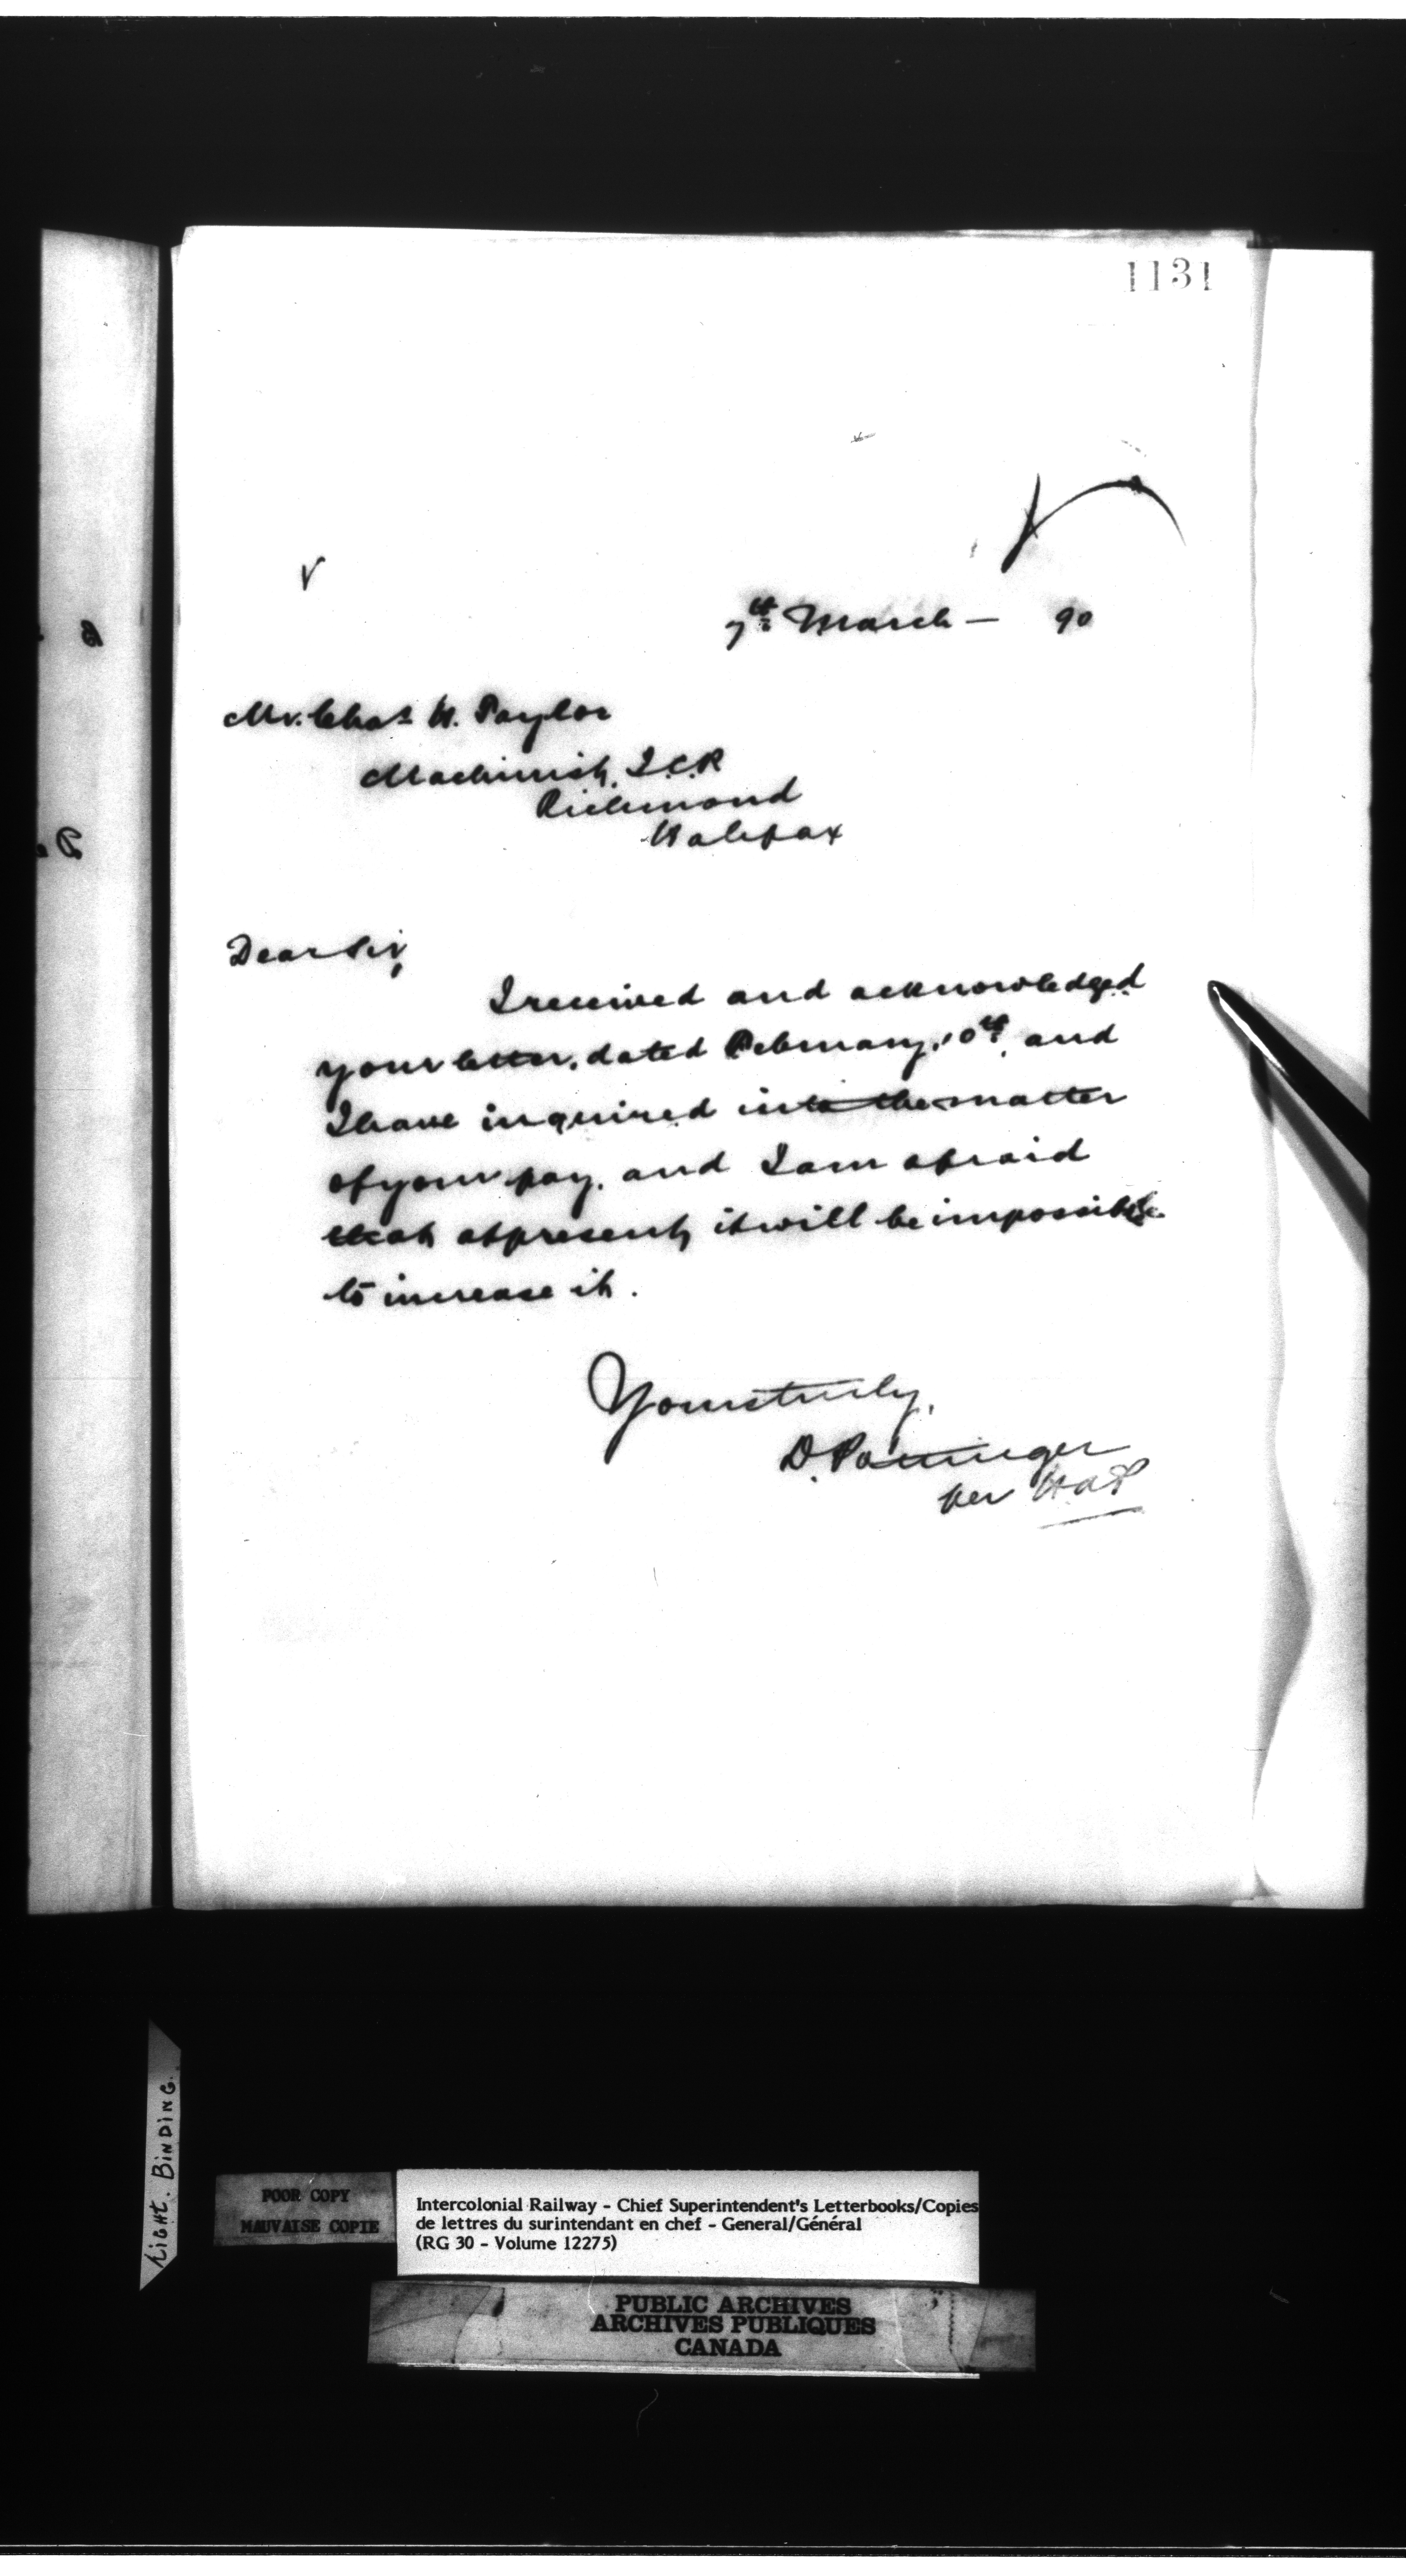 1131
7th March — 90
Mr. Chas H. Taylor
Machinist, I.C.R
Richmond
Halifax
Dear Sir,
I received and acknowledged
your letter, dated February 10th, and
I have inquired into the matter
of your pay, and I am afraid
that at present, it will be impossible
to increase it.
Yours truly,
D. Pottinger
per
LIGHT. BINDING.
POOR COPY
MAUVAISE COPIE
Intercolonial Railway - Chief Superintendent's Letterbooks/Copies
de lettres du surintendant en chef - General/Général
(RG 30 - Volume 12275)
PUBLIC ARCHIVES
ARCHIVES PUBLIQUES
CANADA